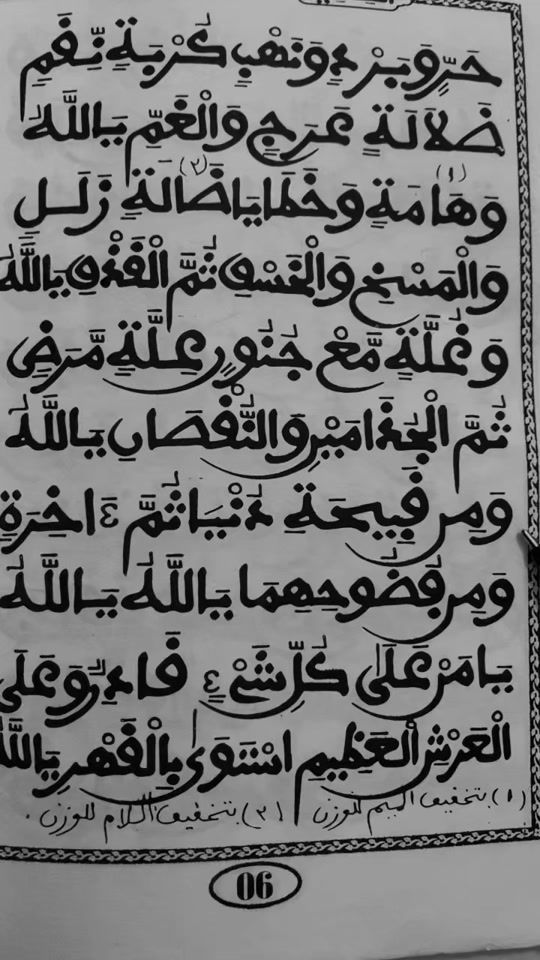 حَرٍّ وَبَرْدٍ وَنَهْبٍ كُرْبَةٍ نِّقَمٍ
ضَلاَلَةٍ عَرَجٍ وَالْغَمِّ يَااللَّهُ
وَهَامَةٍ (١) وَخَطَايَا ضَالَةٍ (٢) زَلَلٍ
وَالْمَسْخِ وَالْخَسْفِ ثُمَّ الْقَذْفِ يَااللَّهُ
وَغُلَّةٍ مَّعْ جُنُونٍ عِلَّةٍ مَّرَضٍ
ثُمَّ الْجُذَامَيْنِ وَالنُّقْصَانِ يَااللَّهُ
وَمِن قَبِيحَةِ دُنْيَا ثُمَّ ءَاخِرَةٍ
وَمِن فُضُوحِهِمَا يَااللَّهُ يَااللَّهُ
يَامَنْ عَلَى كُلِّ شَيْءٍ قَادِرٌ وَعَلَى
الْعَرْشِ الْعَظِيمِ اسْتَوَى بِالْقَهْرِ يَااللَّهُ
(١) بتخفيف الميم للوزن (٢) بتخفيف اللام للوزن.
06